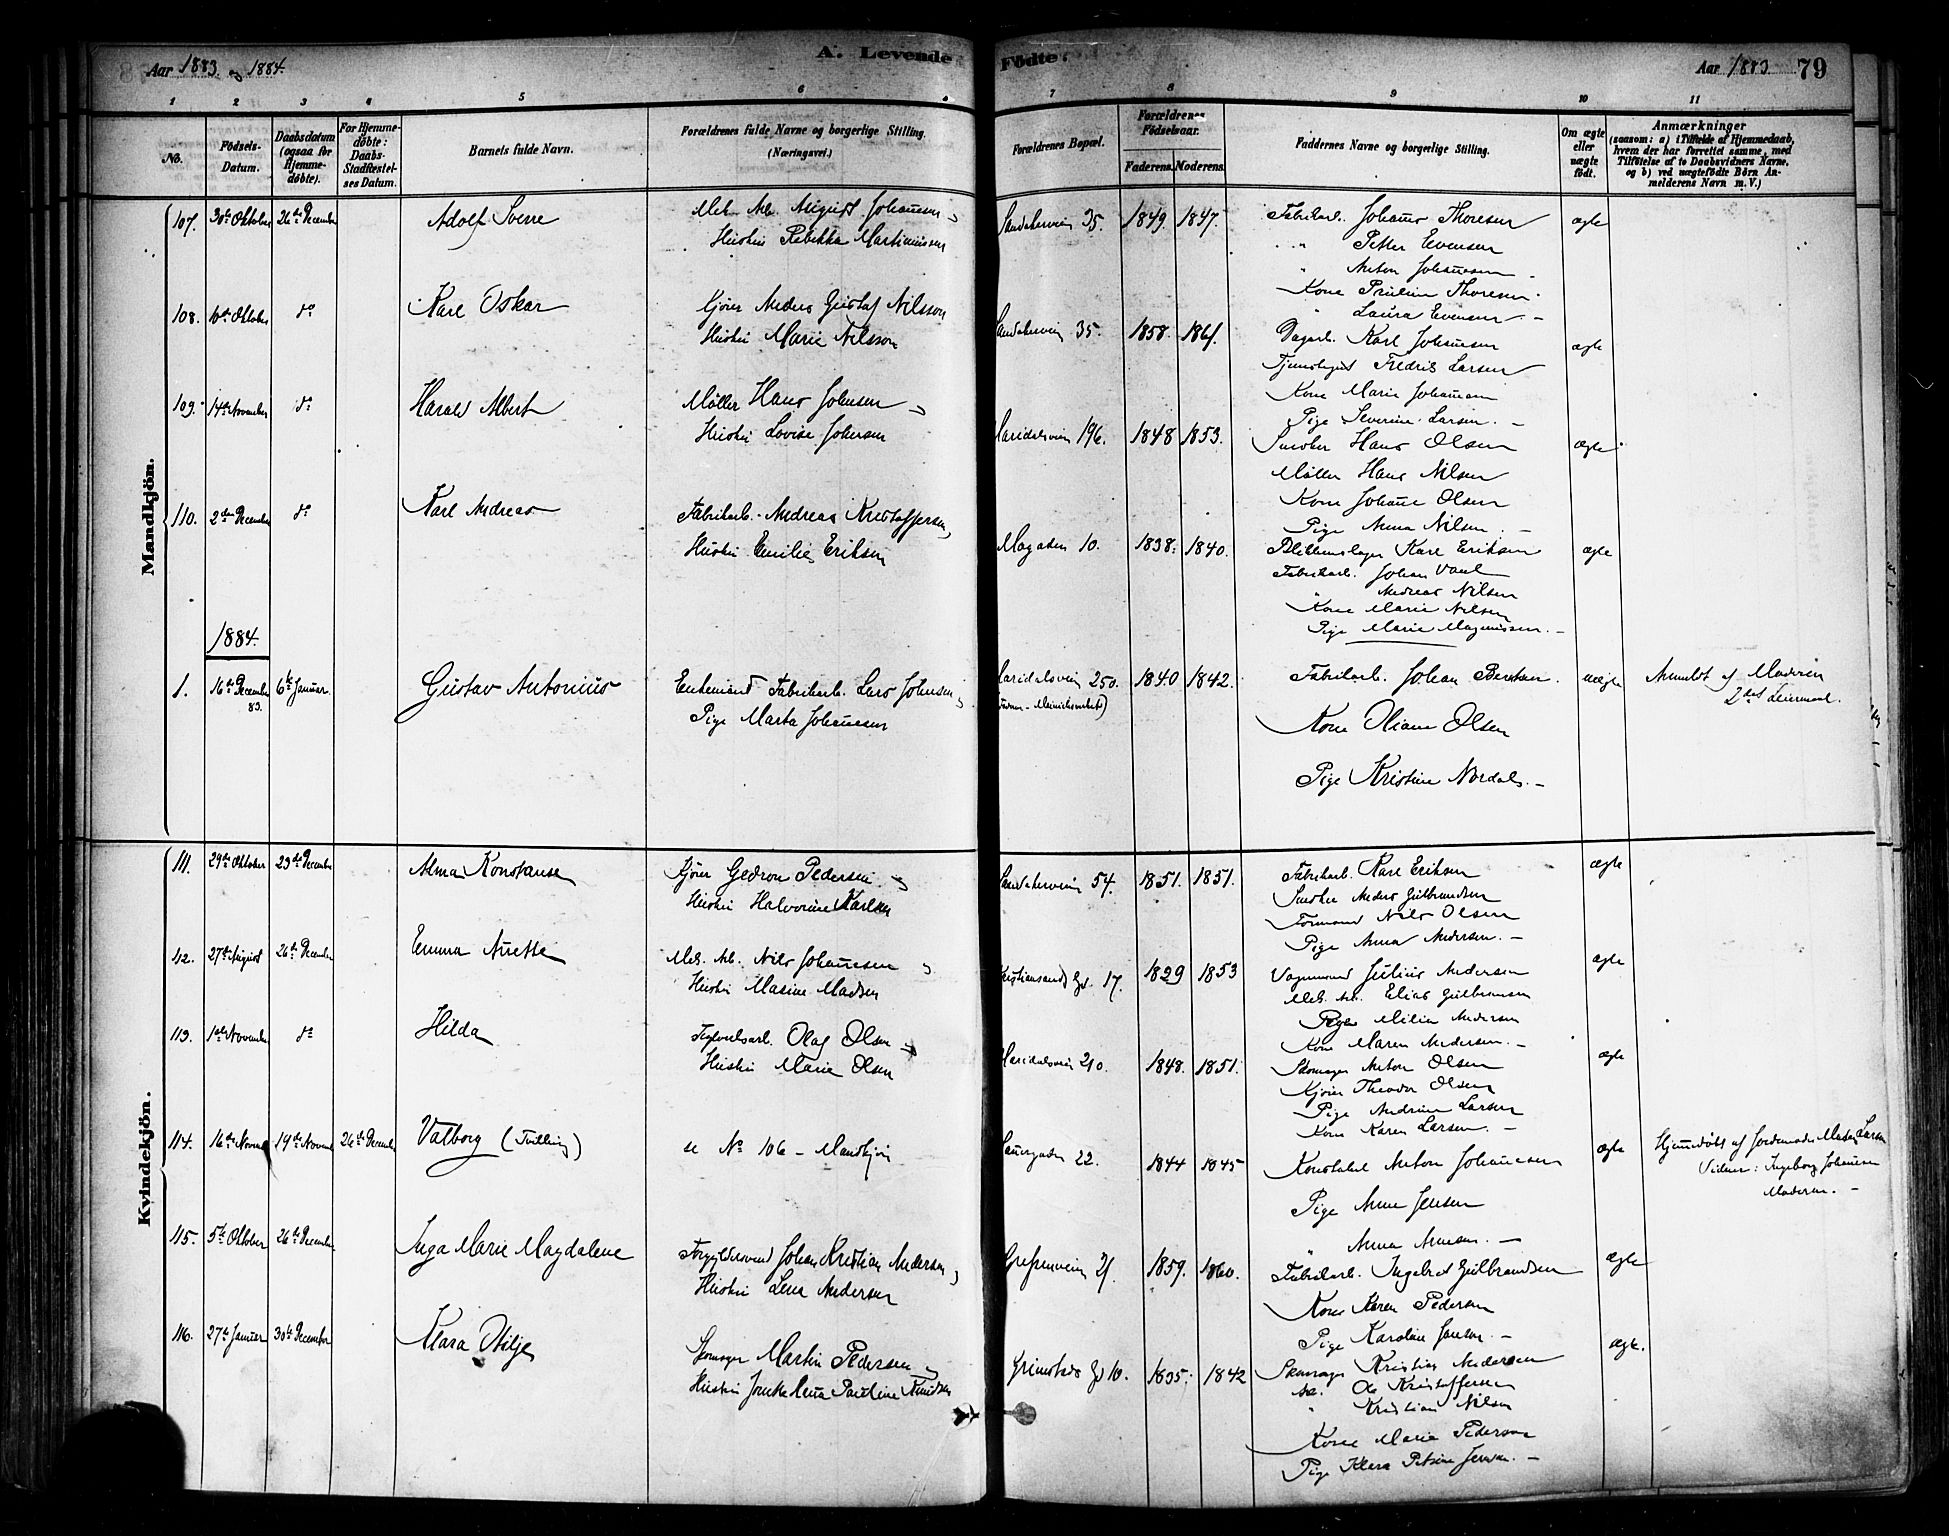 Aar 1883 og 1884.
A. Levende Fødte.
Aar 1883. 79
1 2 3 4 5 6 6 7 8 9 10 11
No.
Fødsels-Datum.
Daabsdatum (ogsaa for Hjemme-døbte).
For Hjemme-døbte: Daabs-Stadfæstelses Datum.
Barnets fulde Navn.
Forældrenes fulde Navne og borgerlige Stilling. (Næringsvei.)
Forældrenes Bopæl.
Forældrenes Fødselsaar.
Faderens. Moderens.
Faddernes Navne og borgerlige Stilling.
Om ægte eller uægte født.
Anmærkninger
(saasom: a) i Tilfælde af Hjemmedaab, hvem der har forrettet samme, med Tilføielse af to Daabsvidners Navne, og b) ved uægtefødte Børn Anmelderens Navn m. V.)
Mandkjön.
107. 30te Oktober 26de December Adolf Sverre Mek. Arb. August Johansen Sandakerveien 35. 1849. 1847. Fabrikarb. Johans Thoresen ægte
Hustru Rebekka Martinussen
Petter Evensen
Anton Johansen
Kone Pauline Thoresen
Laura Evensen
108. 10de Oktober do Karl Oskar Kjører Anders Gustaf Nilsson Sandakerveien 35. 1858. 1861. Dagarb. Karl Johansen ægte
Hustru Marie Nilsson
Fredrik Larsen
Kone Marie Johansen
Pige Severine Larsen
109. 14de November do Harald Albert Møller Hans Johnsen Maridalsveien 196. 1848 1853. Snedker Hans Olsen ægte
Hustru Lovise Johnsen
Møller Hans Nilsen
Kone Johanne Olsen
Pige Anna Nilsen
110. 2den December do Karl Andreas Fabrikarb. Andreas Kristoffersen 10. 1838. 1840. Blikkenslager Karl Eriksen ægte
Hustru Emilie Eriksen
Fabrikarb. Johan
Andreas Nilsen
Kone Marie Nilsen
Pige Marie Magnussen
1884.
1. 16de December 83. 6te Januar Gustav Antonius Enkemand Fabrikarb. Lars Johnsen Maridalsveien 250. 1840 1842. Fabrikarb. Johan Berntsen uægte Anmeldt af Moderen
Pige Marta Johannesen
2det Leiermaal.
Kone Oliane Olsen
Pige Kristine Nordals.
Kvindekjön.
111. 29de Oktober 23de December Alma Konstanse Kjører Pedersen Sandakerveien 54. 1851. 1851. Fabrikarb. Karl Eriksen ægte
Hustru Halvorine Karlsen
Snedker Anders Gulbrandsen
Formand Nils Olsen
Pige Anna Andersen
112. 27de August 26de December Emma Anette Mek. Arb. Nils Johannesen Kristiansands Gd. 17. 1829 1853 Vognmand Julius Andersen ægte
Hustru Maxine Madsen
Mek. Arb. Elias Gulbransen
Pige Milia Andersen
Kone Maren Andersen
113. 1ste November do Hilda Teglverksarb. Olaf Olsen Maridalsveien 210. 1848. 1851. Skomager Anton Olsen ægte
Hustru Marie Olsen
Kjører Theodor Olsen
Pige Andrine Larsen
Kone Karen Larsen
114. 16de Novemb 19de Novemb 26de December Valborg (Tvilling) se No 106 – Mandkjøn 22. 1844 1845 Konstabel Anton Johannesen ægte Hjemdøbt af Jordemoder Larsen
Vidner: Ingeborg Johannesen
Moderen.
Pige Anne Jensen
115. 5te Oktober 26de December Inga Marie Magdalene Forgyldersvend Johan Kristian Andersen Grefsenveien 21. 1859. 1860. Fabrikarb. Ingebret Gulbrandsen ægte
Hustru Lena Andersen
Kone Karen Pedersen
Pige Karoline Jansen
116. 27de Januar 30te December Klara Skomager Martin Pedersen Grimstads Gd 10. 1835. 1842 Skomager Kristian Andersen ægte.
Hustru Pauline Knudsen
do. Ole Kristoffersen
Kristian Nilsen
Kone Marie Pedersen
Pige Klara Petrine Jensen.